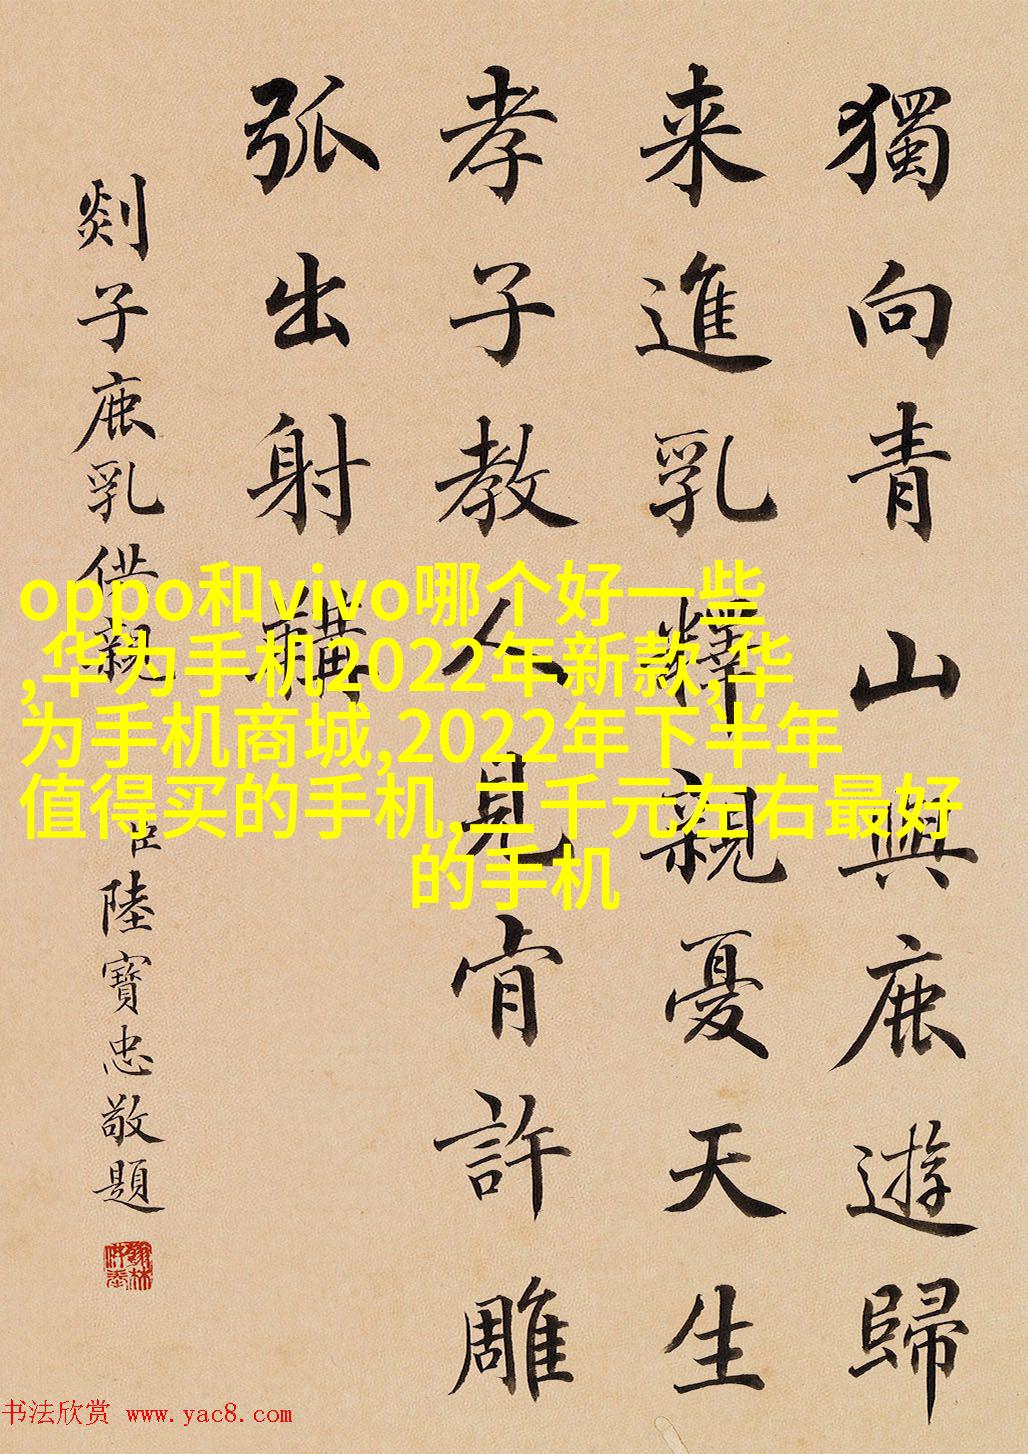 獨向青山與鹿遊歸
来進乳釋親憂天生
孝子教人見肯許雕
弧出射
剡子鹿乳供親
臣陸寶忠敬題
oppo和vivo哪个好一些
,华为手机2022年新款,华
为手机商城,2022年下半年
值得买的手机,三千元左右最好
的手机
书法欣赏 www.yac8.com